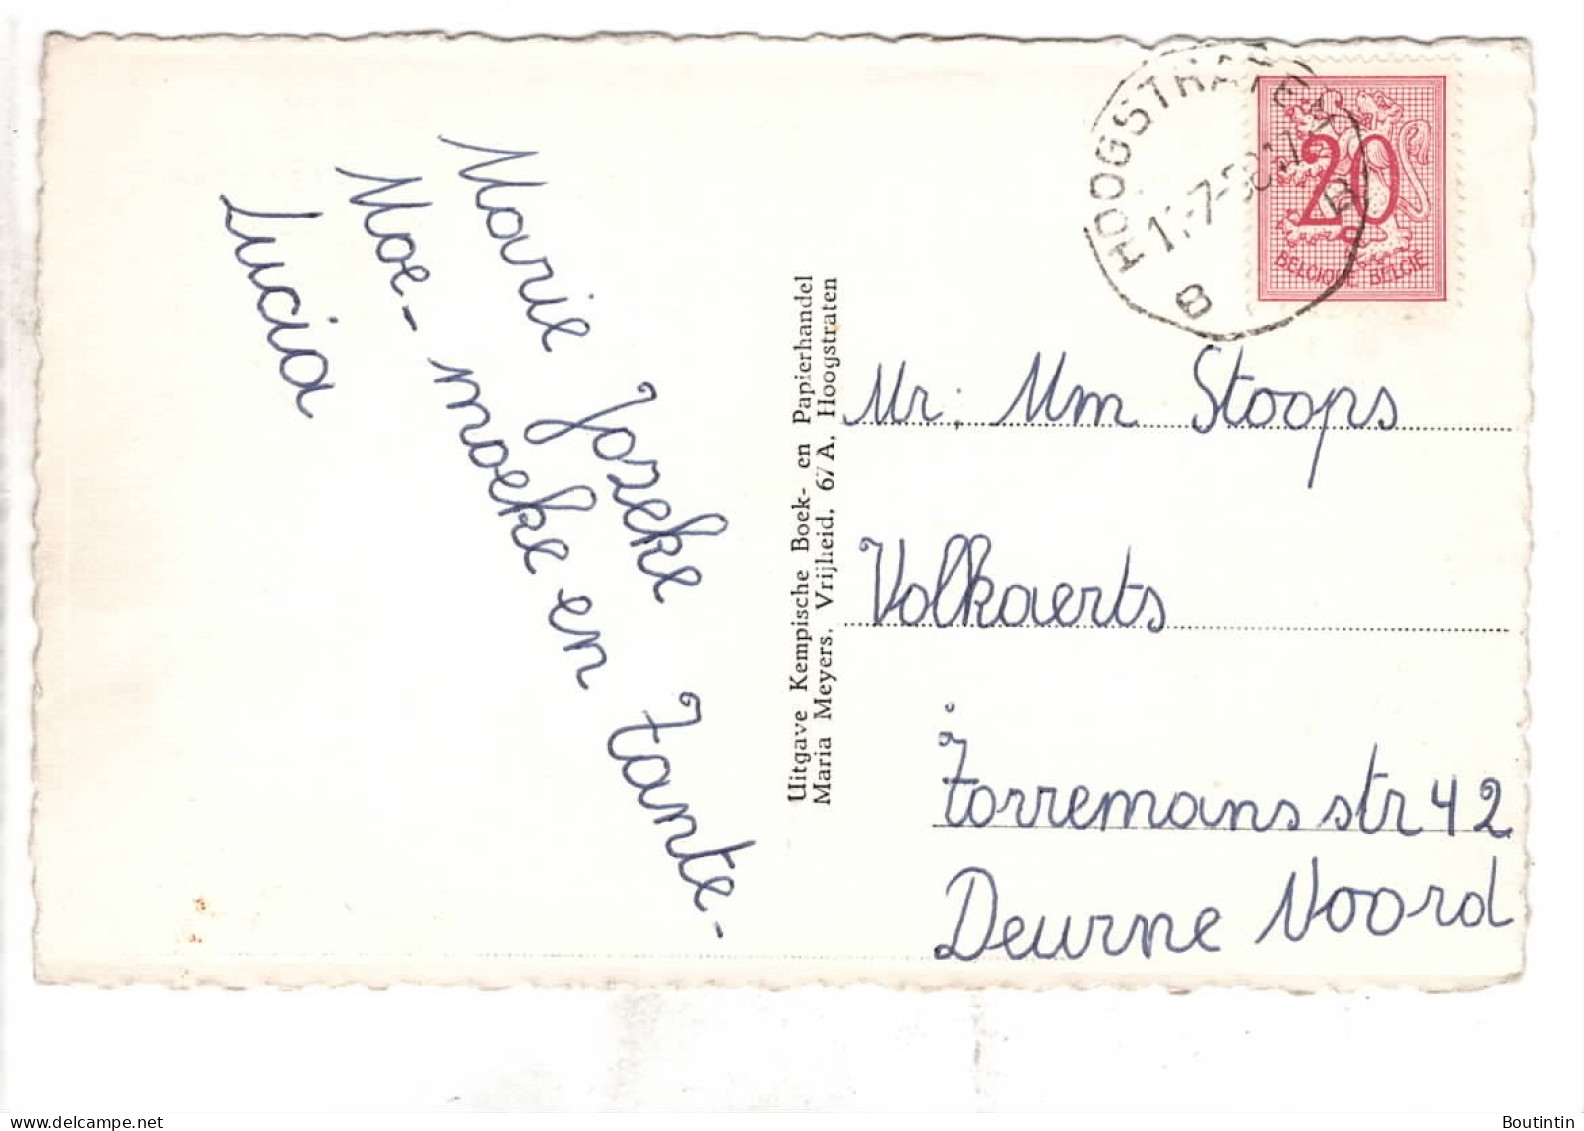 Marie Jozeke
Moe-moeke en Tante-
Lucia
Uitgave Kempische Boek- en Papierhandel
Maria Meyers, Vrijheid, 67A, Hoogstraten
HOOGSTRATEN
B
B
20
BELGIQUE BELGIË
Mr. Mm Stoops
Volkaerts
Torremans str 42
Deurne Noord
Boutintin